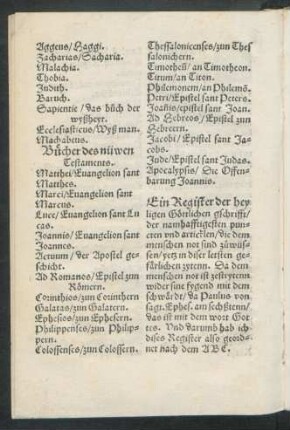 Aggeus/ Haggi.
Zacharias/ Sacharia.
Malachia.
Thobia.
Judith.
Baruch.
Sapientie/ das bůch der
wyßheyt.
Ecclesiasticus/ Wyß man.
Machabeus.
Bücher des nüwen
Testaments.
Matthei/ Euangelion sant
Matthes.
Marci/ Euangelion sant
Marcus.
Luce/ Euangelion sant Lu
cas.
Joannis/ Euangelion sant
Joannes.
Actuum/ der Apostel ge-
schicht.
Ad Romanos/ Epistel zun
Römern.
Corinthios/ zun Corinthern
Galatas/ zun Galatern.
Ephesios/ zun Ephesern.
Philippenses/ zun Philip-
pern.
Colossenses/ zun Colossern.
Thessalonicenses/ zun Thes
salonichern.
Timotheū/ an Timotheon.
Titum/ an Titon.
Philemonem/ an Philemō.
Petri/ Epistel sant Peters.
Joānis/ epistel sant Joānis.
Ad Hebreos/ Epistel zun
Hebreern.
Jacobi/ Epistel sant Ja-
cobs.
Jude/ Epistel sant Judas.
Apocalypsis/ Die Offen-
barung Joannis.
Ein Register der hey
ligen Göttlichen gschrifft/
der namhafftigesten pun-
cten vnd articklen/ die dem
menschen not sind zůwüs-
sen/ yetz in diser letsten ge-
färlichen zytenn. Da dem
menschen not ist zestryten
wider sine fygend mit dem
schwärdt/ da Paulus von
sagt. Ephes. am sechßtenn/
das ist mit dem wort Got
tes. Vnd darumb hab ich
dises Register also geord-
net nach dem A B C.